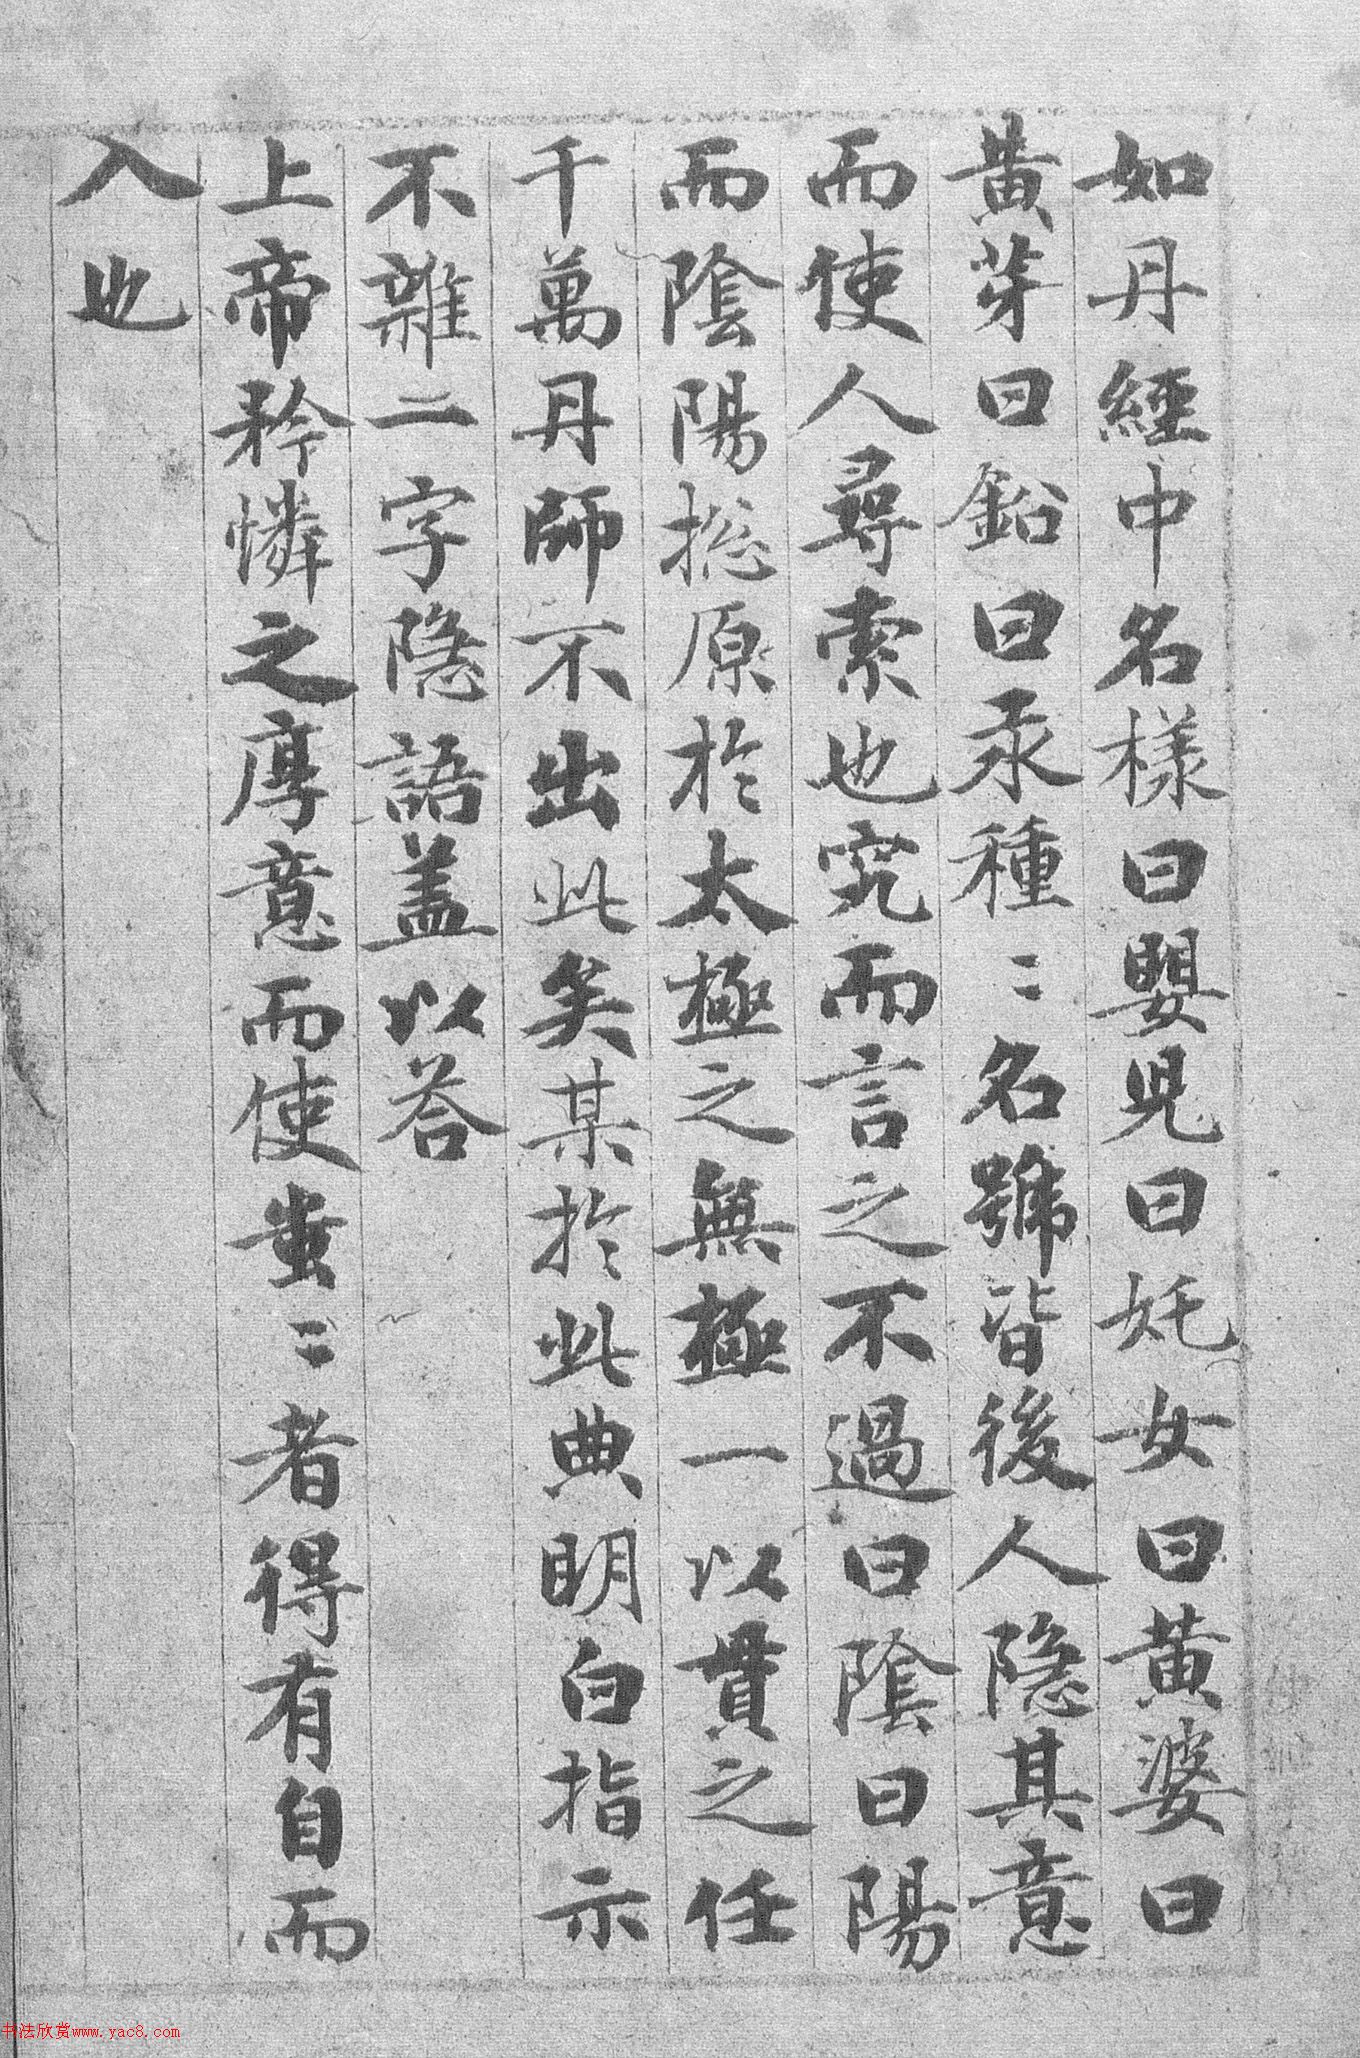 如丹經中名樣曰嬰児曰奼女曰黃婆曰
黃芽曰鉛曰汞種〻名號皆後人隐其意
而使人尋索也究而言之不過曰陰曰陽
而陰陽捴原於太極之無極一以貫之任
千萬丹師不出此矣某於此典明白指示
不雜一字隐語盖以荅
上帝矜憐之厚意而使蚩〻者得有自而
入也
书法欣赏www.yac8.com